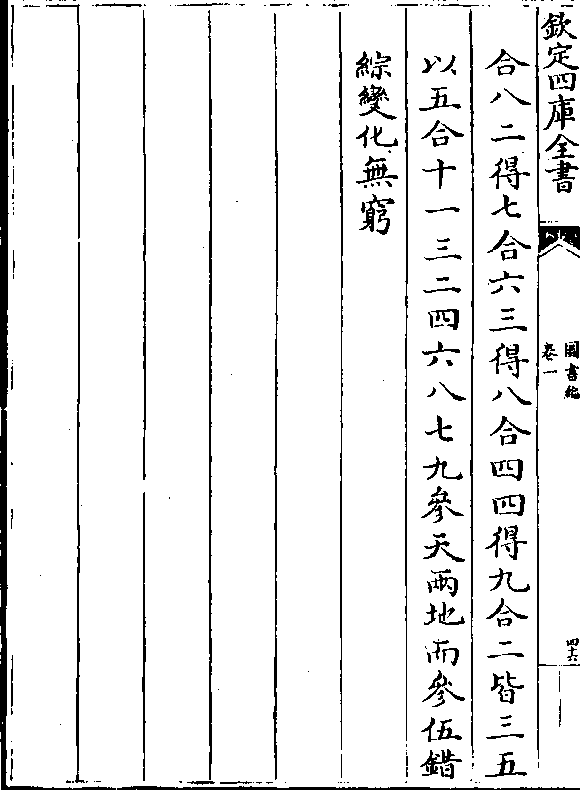 欽定四庫全書
圖書編
卷一
四十六
合八二得七合六三得八合四四得九合二皆三五
以五合十一三二四六八七九參天兩地而參伍錯
綜變化無窮